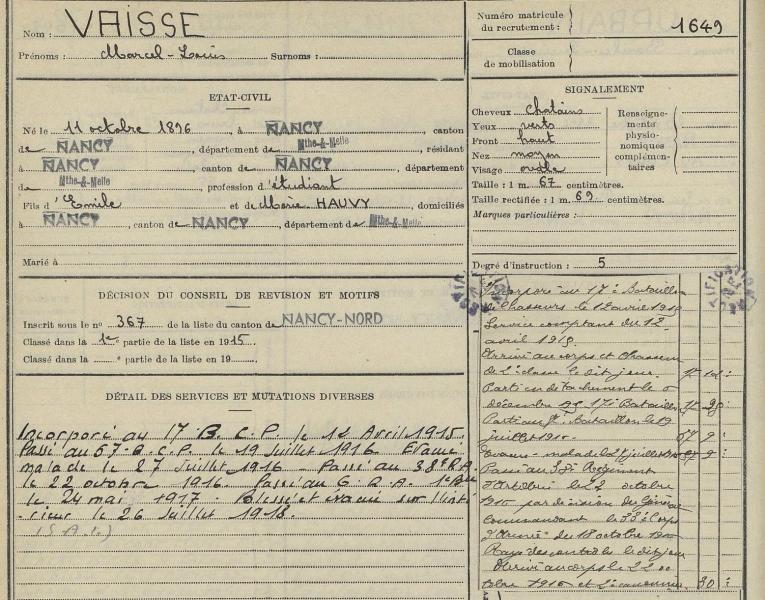 Nom : VAISSE
Prénoms : Marcel-Louis Surnoms :
Numéro matricule
du recrutement : 1649
Classe
de mobilisation
ETAT-CIVIL
Né le 11 octobre 1896, à NANCY, canton
de NANCY, département de Mthe-&-Melle, résidant
à NANCY, canton de NANCY, département
de Mthe-&-Melle, profession d'étudiant
Fils d'Emile et de Marie HAUVY, domiciliés
à NANCY, canton de NANCY, département de Mthe-&-Melle
Marié à
SIGNALEMENT
Cheveux chatains
Yeux verts
Front haut
Nez moyen
Visage ovale
Renseigne-
ments
physio-
nomiques
complémen-
taires
Taille : 1 m. 67 centimètres.
Taille rectifiée : 1 m. 69 centimètres.
Marques particulières :
Degré d'instruction : 5
DÉCISION DU CONSEIL DE REVISION ET MOTIFS
Inscrit sous le no 367 de la liste du canton de NANCY-NORD
Classé dans la 1e partie de la liste en 1915.
Classé dans la e partie de la liste en 19
DÉTAIL DES SERVICES ET MUTATIONS DIVERSES
Incorporé au 17 B.C.P. le 12 Avril 1915.
Passé au 57 B.C.P. le 19 Juillet 1916 Evacué
malade le 27 Juillet 1916 - Passé au 38e R.A.
le 22 octobre 1916. Passé au 6 R.A.
le 24 mai 1917 - Blessé et évacué sur l'inté
-rieur le 26 Juillet 1918.
Incorporé au 17e Bataillon
de Chasseurs le 12 avril 1915
Service comptant du 12
avril 1915.
Arrivé au corps et Chasseur
de 2e classe le dit jour.
Parti en détachement le
décembre 17e Bataillon
Bataillon le 19
juillet
Evacué malade le 27 juillet
Passé au Régiment
d'Artillerie le 22 octobre
par décision du Général
Commandant le Corps
d'Armée du 18 octobre
Rayé des contrôles le dit jour
Arrivé au corps le 22 oc
tobre 1916 et 2e canonnier